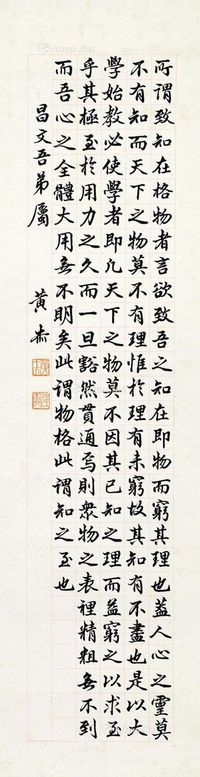 所謂致知在格物者言欲致吾之知在即物而窮其理也蓋人心之靈莫
不有知而天下之物莫不有理惟於理有未窮故其知有不盡也是以大
學始教必使學者即凡天下之物莫不因其已知之理而益窮之以求至
乎其極至於用力之久而一旦豁然貫通焉則衆物之表裡精粗無不到
而吾心之全體大用無不明矣此謂物格此謂知之至也
昌文吾弟屬 黃杰